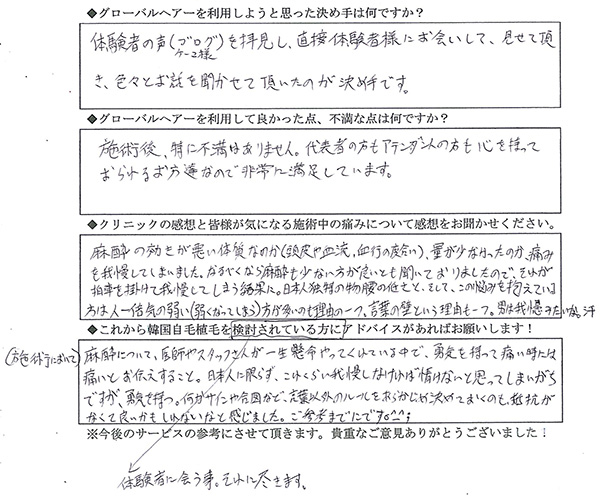 ◆グローバルヘアーを利用しようと思った決め手は何ですか？
体験者の声(ブログ)を拝見し、直接体験者様にお会いして、見せて頂
ケーユ様
き、色々とお話を聞かせて頂いたのが決め手です。
◆グローバルヘアーを利用して良かった点、不満な点は何ですか？
施術後、特に不満はありません。代表者の方もアテンダントの方も心を持って
おられるお方達なので非常に満足しています。
◆クリニックの感想と皆様が気になる施術中の痛みについて感想をお聞かせください。
麻酔の効きが悪い体質なのか(頭皮や血流、血行の度合い)、量が少なかったのか、痛み
を我慢してしまいました。なるべくなら麻酔も少ない方が良いとも聞いておりましたので、それが
拍車を掛けて我慢してしまう結果に。日本人独特の物腰の低さと、そして、この悩みを抱えている
方は人一倍気の弱い(弱くなってしまう)方が多いのも理由の一つ、言葉の壁という理由も一つ。男は我慢みたいな、汗
◆これから韓国自毛植毛を検討されている方にアドバイスがあればお願いします！
(お施術において)麻酔について、医師やスタッフさんが一生懸命やってくれている中で、勇気を持って痛い時には
痛いとお伝えすること。日本人に限らず、これくらい我慢しなければ情けないと思ってしまいがち
ですが、勇気を持つ。何かサインや合図など、言葉以外のルールをあらかじめ決めておくのも、抵抗が
なくて良いかもしれないなと感じました。ご参考までにです^^;
※今後のサービスの参考にさせて頂きます。貴重なご意見ありがとうございました！
体験者に会う事。それに尽きます。